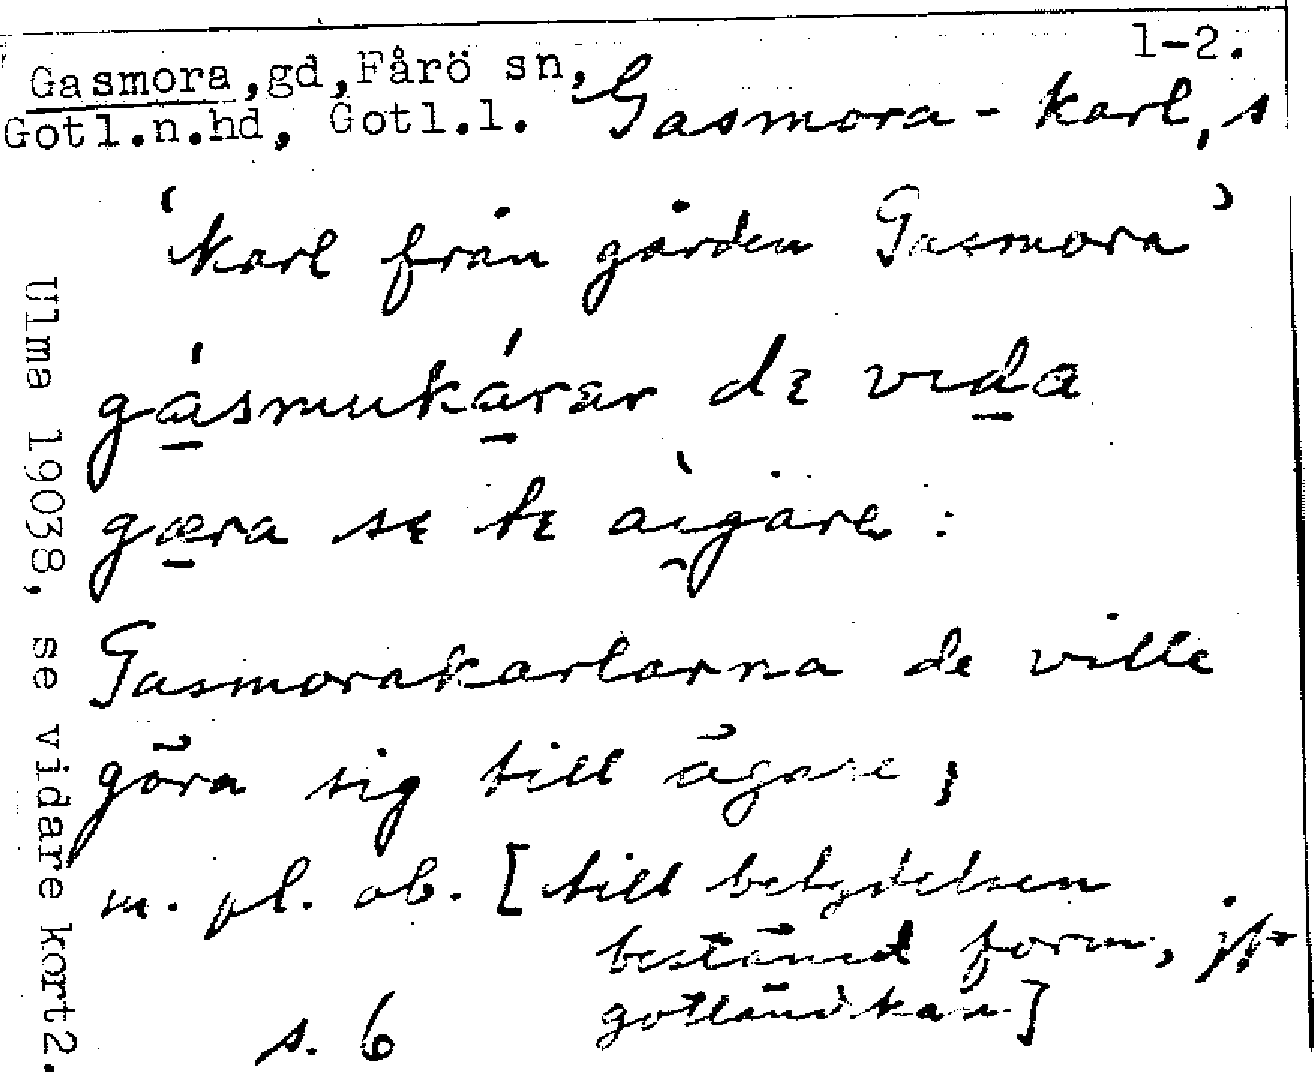 1-2.
Gasmora,gd,Fårö sn,
Gotl.n.hd, Gotl.l. Gasmora-karl, s
'karl från gården Gasmora'
gásmukárar dɛ vida
gæra sɛ tɛ àigarɛ :
Gasmorakarlarna de ville
göra sig till ägare;
m. pl. ob. [till betydelsen
bestämd form, jfr
gotländskan]
s. 6
Ulma 19038, se vidare kort2.